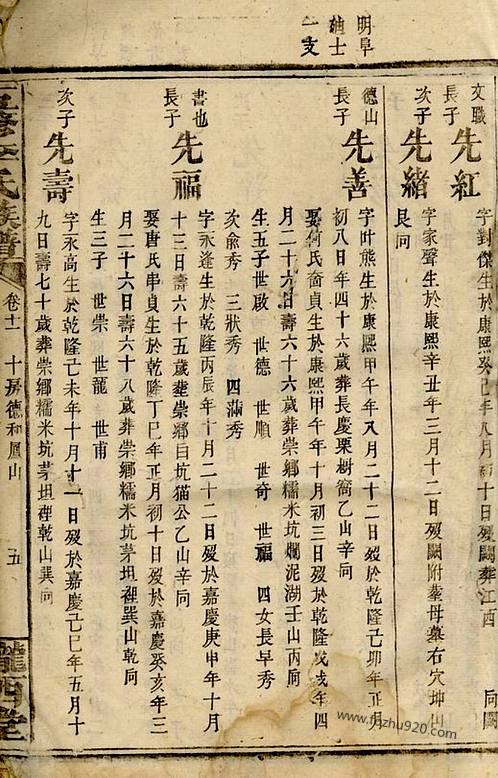 明阜
廸士
一支
文職
長子
先紅
字對傑生於康熙癸巳年八月初十日歿闕葬江西
同闕
次子
先緒
字家聲生於康熙辛丑年三月十二日歿闕附葬母墓右穴坤山
艮向
德山
長子
先善
字叶熊生於康熙甲午年八月二十二日歿於乾隆己卯年正月
初八日年四十六歲葬長慶栗樹窩乙山辛向
娶何氏奩貞生於康熙甲午年十月初三日歿於乾隆戊戌年四
月二十六日壽六十六歲葬崇鄉糯米坑爛泥湖壬山丙向
生五子世啟 世德 世順 世奇 世福 四女長早秀
次兪秀 三狀秀 四滿秀
書也
長子
先福
字永逢生於乾隆丙辰年十月二十二日歿於嘉慶庚申年十月
十三日壽六十五歲葬崇鄉白坑猫公乙山辛向
娶唐氏串貞生於乾隆丁巳年正月初十日歿於嘉慶癸亥年三
月二十六日壽六十八歲葬崇鄉糯米坑茅坦裡巽山乾向
生三子 世崇 世龍 世甫
次子
先壽
字永高生於乾隆己未年十月十一日歿於嘉慶己巳年五月十
九日壽七十歲葬崇鄉糯米坑茅坦裡乾山巽向
五修李氏族譜
卷十一 十房德和鳳山
五
龍西堂
www.fazhu920.com